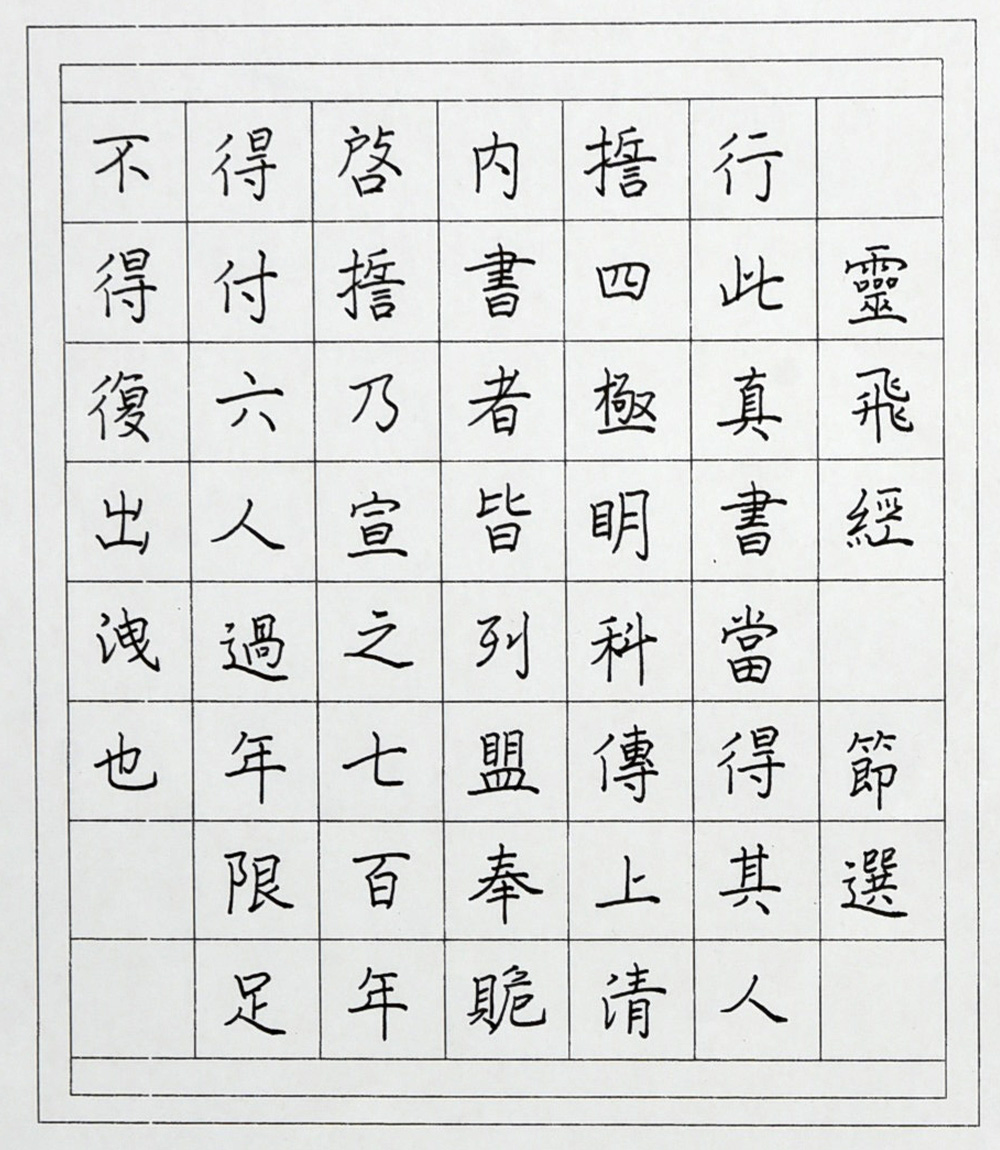 靈飛經 節選
行此真書當得其人
擔四極明科傳上清
內書者皆列盟奉賍
啓擔乃宣之七百年
得付六人過年限足
不得復出洩也